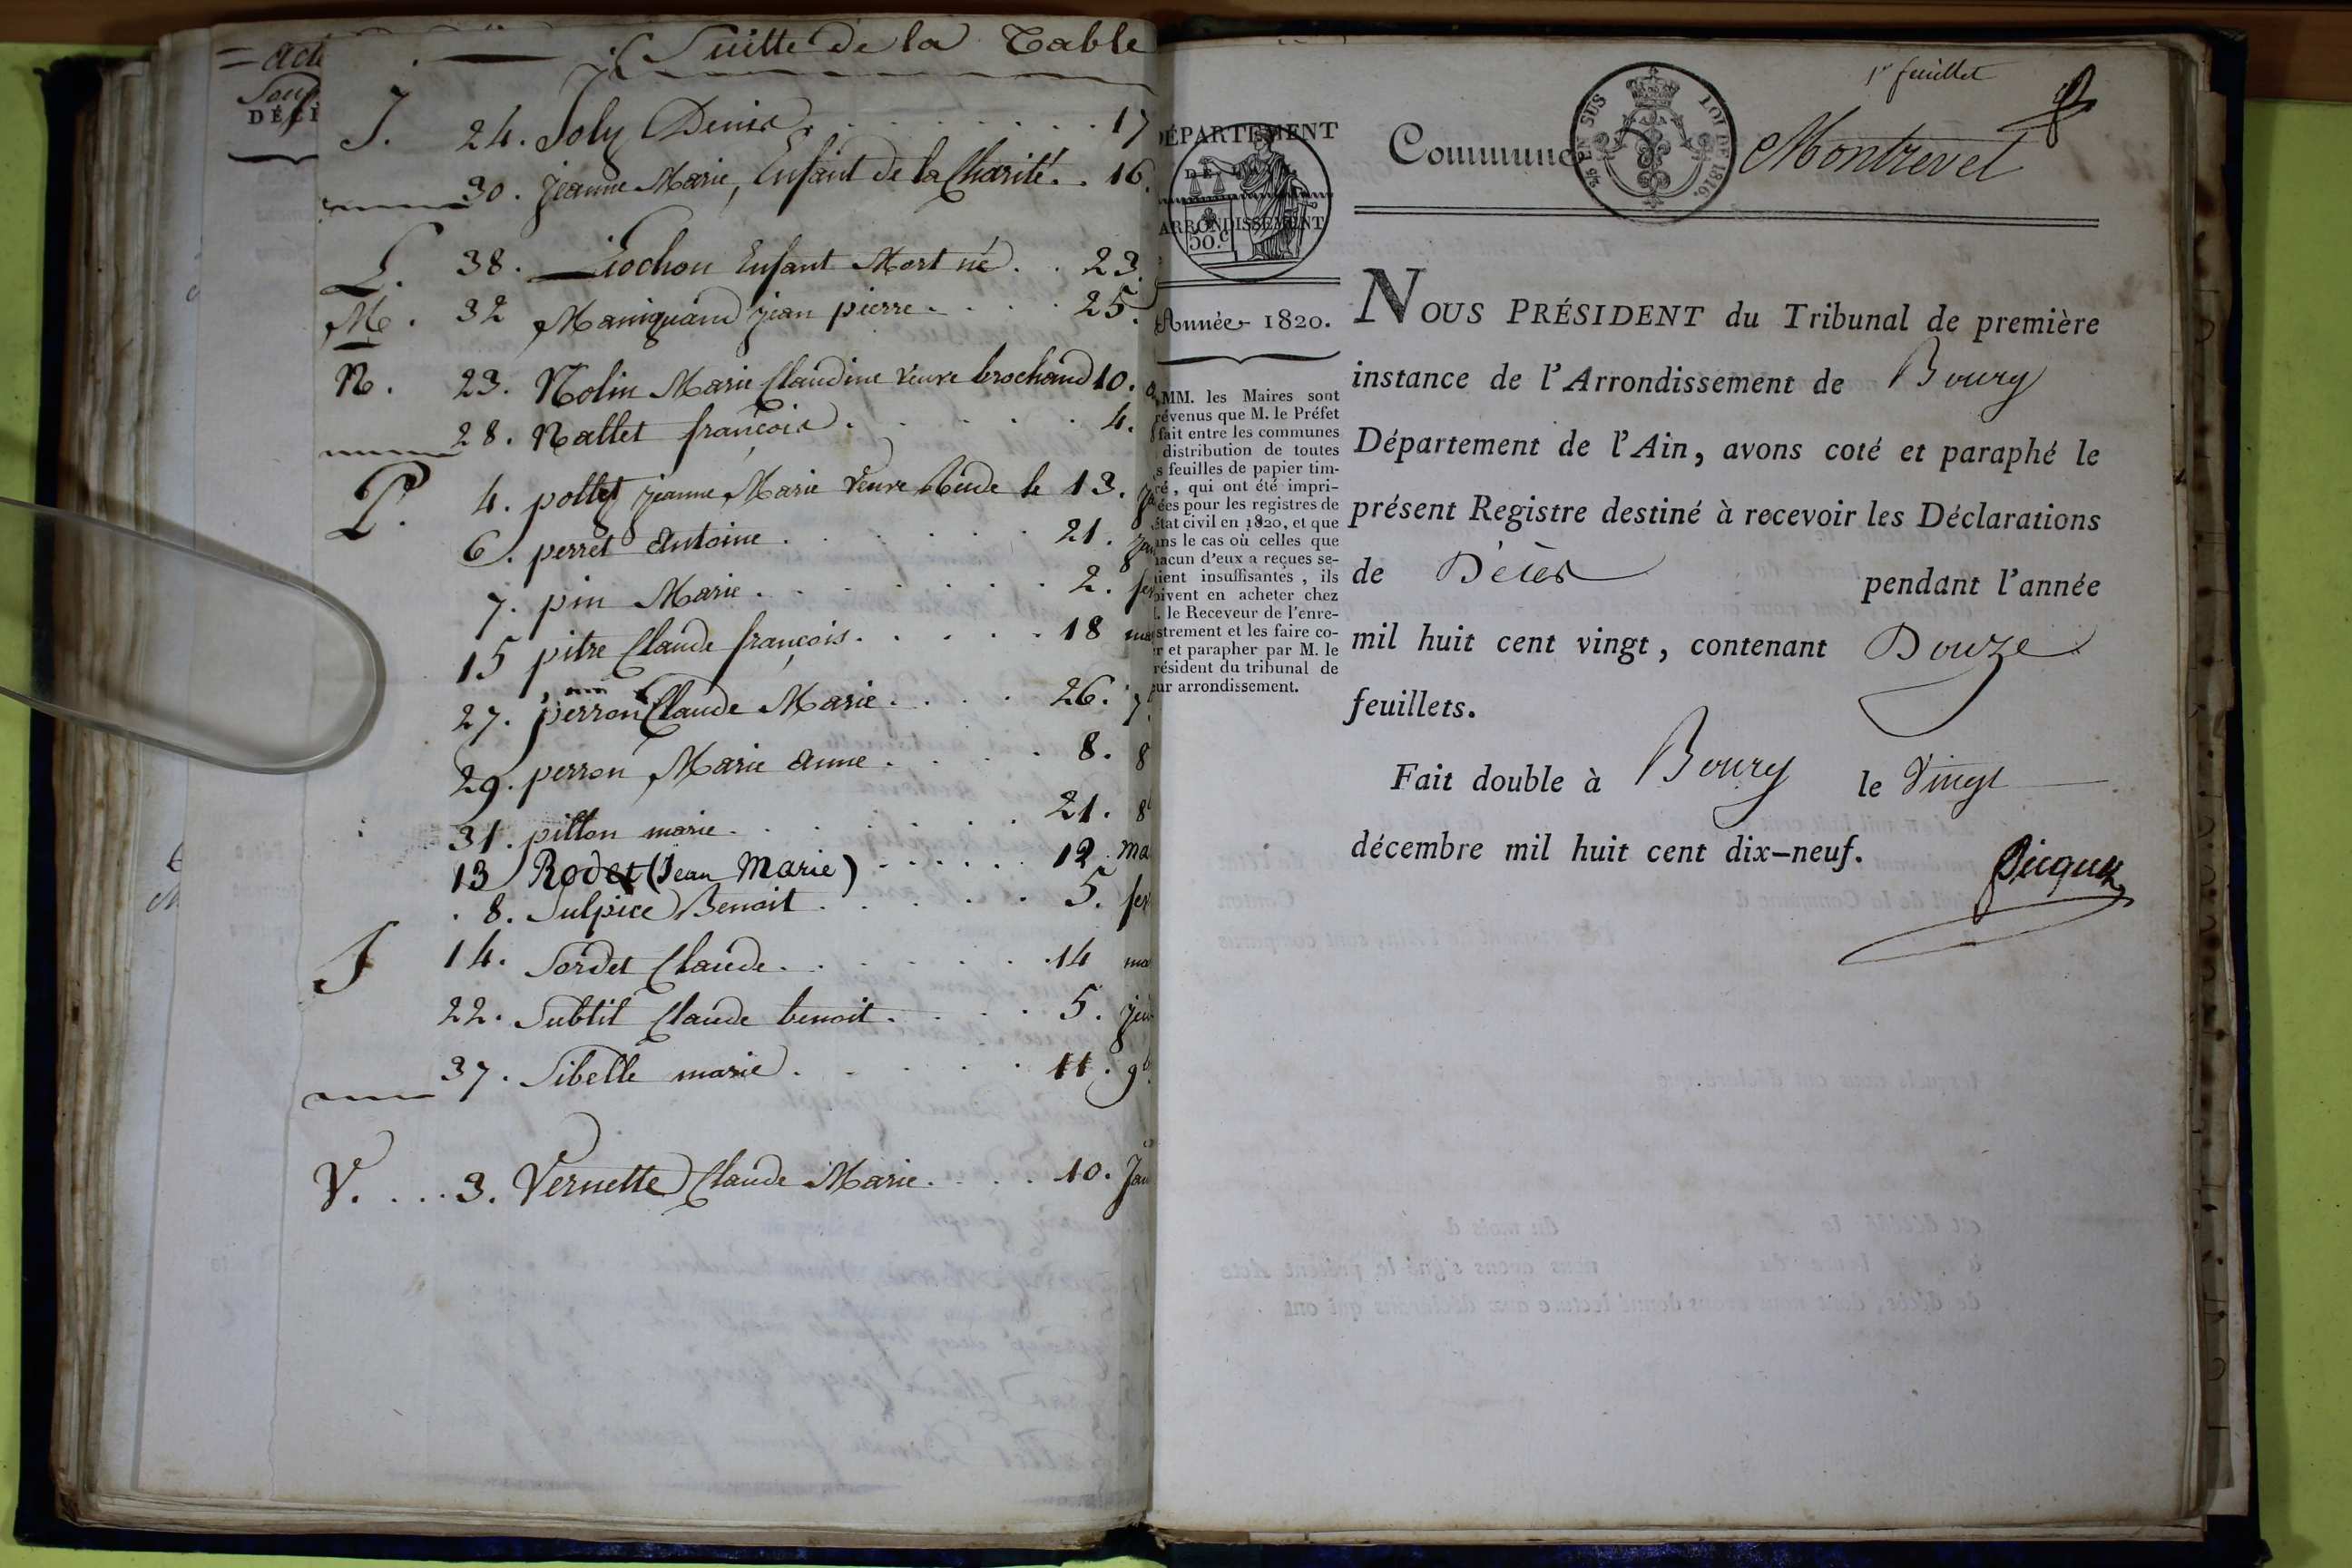 Suitte de la Table
J. 24. Joly Denis 17
30. jeanne Marie, Enfant de la Charité. . 16.
L. 38. Liochon Enfant Mort né . . 23.
M. 32 Maniquand jean pierre . . . . 25.
N. 23. Nolin Marie Claudine veuve brochand 10.
28. Nallet françois . . . . . . 4.
P. 4. pollet jeanne Marie veuve le 13.
6. perret Antoine . . . . . . 21.
7. pin Marie . . . . . . . 2. fev
15 pitre Claude françois . . . . . 18
27. perron Claude Marie . . . . 26.
29. perron Marie Anne . . . . 8. 8
31. pillon marie . . . . . . . 21. 8
13 Rodet (Jean Marie) . . . . . . 12. ma
8. Sulpice Benoit . . . . . . 5. fev
S 14. Sordet Claude . . . . . . 14 ma
22. Subtil Claude benoit . . . . 5.
37. Sibelle marie . . . . . . 11. 9b
V. . . . 3. Vernette Claude Marie . . . . 10. Jan
1er feuillet
DÉPARTEMENT
DE L'AIN
ARRONDISSEMENT
50.c
Commune
EN SUS LOI DE 1816.
Montrevel
Année 1820.
MM. les Maires sont
prévenus que M. le Préfet
fait entre les communes
distribution de toutes
s feuilles de papier tim-
ré, qui ont été impri-
ées pour les registres de
état civil en 1820, et que
ans le cas où celles que
hacun d'eux a reçues se-
ient insuffisantes, ils
oivent en acheter chez
. le Receveur de l'enre-
strement et les faire co-
r et parapher par M. le
résident du tribunal de
ur arrondissement.
NOUS PRÉSIDENT du Tribunal de première
instance de l'Arrondissement de Bourg
Département de l'Ain, avons coté et paraphé le
présent Registre destiné à recevoir les Déclarations
de Décès pendant l'année
mil huit cent vingt, contenant Douze
feuillets.
Fait double à Bourg le Vingt
décembre mil huit cent dix-neuf.
Picquet